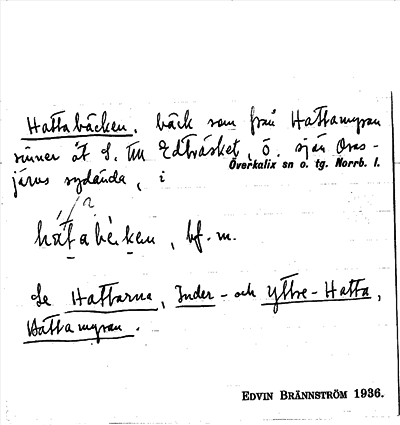 Hattabäcken, bäck som från Hattamyran
rinner åt S. till Edträsket, ö. sjön Oras-
Överkalix sn o. tg. Norrb. l.
järvs sydända, i
?
hátabèken, bf. m.
Se Hattarna, Inder- och Yttre-Hatta,
Hattamyran.
EDVIN BRÄNNSTRÖM 1936.